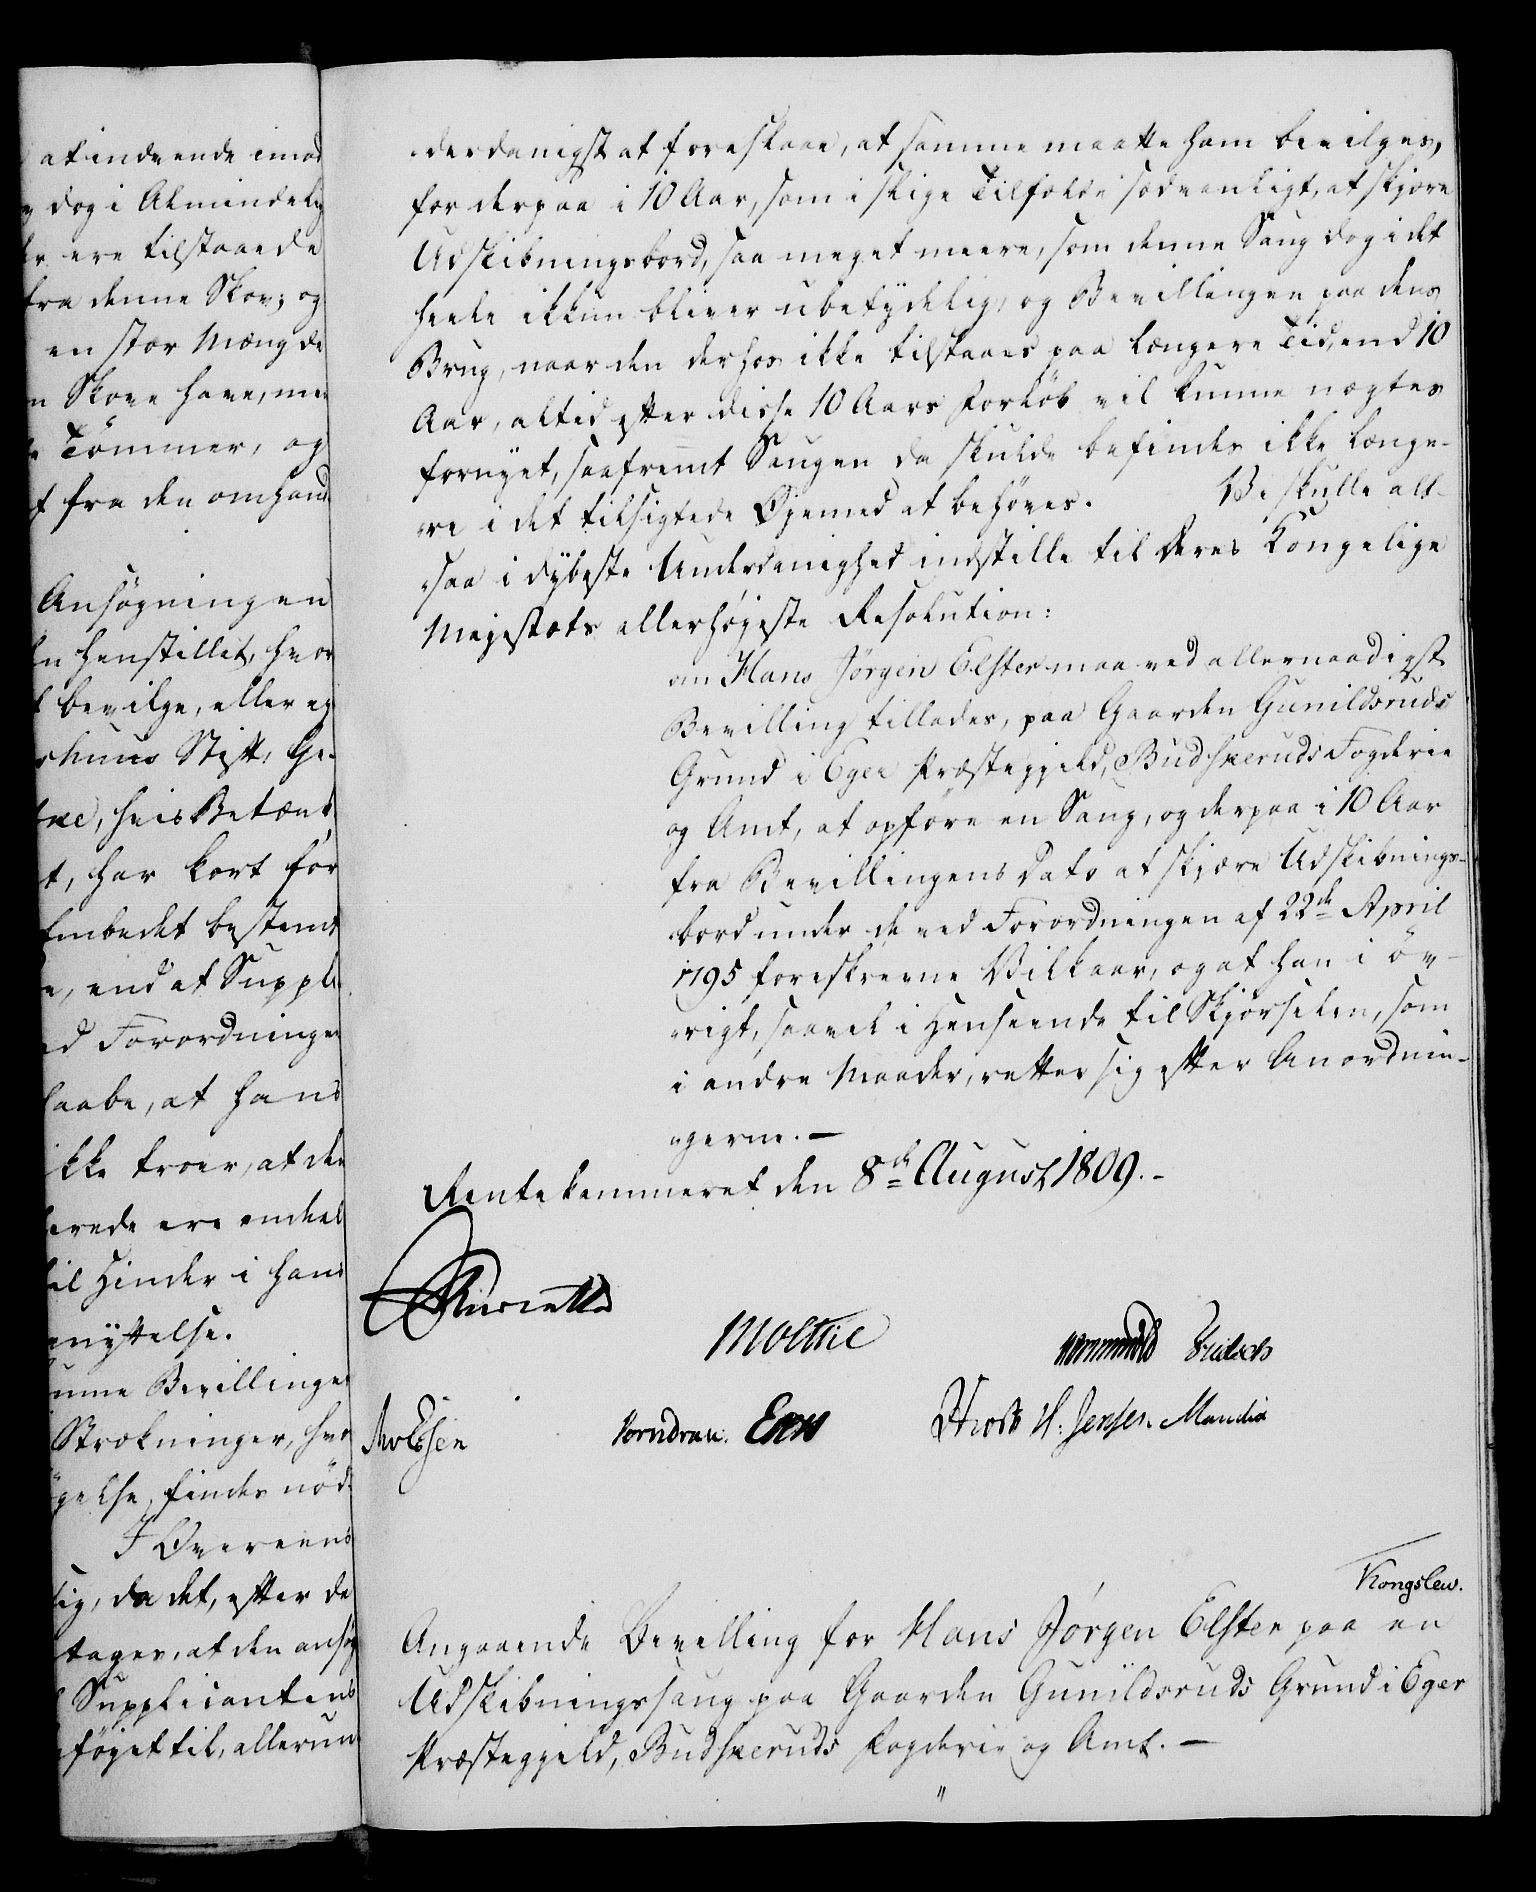 at indvende imod
dog i Almindelig
ere tilstaaede
fra denne Skov; og
en stor Mængde
Skove have, men
Tømmer, og
fra den omhand
Ansøgningen
henstillet, hvor
bevilge, eller ey
Stift, Ge-
hvis Betænk
t, har kort før
Embedet bestemt
end at Suppl.
Forordningen
haabe, at hans
ikke troer, at den
ere endeel
til Hinder i hans
benyttelse.
Bevillinger
Strækninger, hvo
findes nød-
I Overeens
da det, efter de
tages, at den ansøg
Supplicantens
føyet til, allerun
derdanigst at foreslaae, at samme maatte ham bevilges,
for derpaa i 10 Aar, som i slige Tilfælde sædvanligt, at skjære
Udskibningsbord, saa meget meere, som denne Saug dog i det
heele ikkun bliver ubetydelig, og Bevillingen paa dens
Brug, naar den derhos ikke tilstaaes paa længere Tid, end 10
Aar, altid efter disse 10 Aars Forløb vil kunne nægtes
fornyet, saafremt Saugen da skulde befindes ikke længe-
re i det tilsigtede Øjemed at behøves. Vi skulle alt-
saa i dybeste Underdanighed indstille til Deres Kongelige
Majestæts allerhøjeste Resolution:
om Hans Jørgen Elster maa ved allernaadigst
Bevilling tillades, paa Gaarden Gunildsruds
Grund i Eger Præstegjeld, Budskeruds Fogderie
og Amt, at opføre en Saug, og derpaa i 10 Aar
fra Bevillingens Dato at skjære Udskibnings-
bord under de ved Forordningen af 22de April
1795 foreskrevne Vilkaar, og at han i øv-
rigt, saavel i Henseende til Skjørselen, som
i andre Maader, retter sig efter Anordnin-
gerne. —
Rentekammeret den 8de August 1809. -
Moltke
Hammond Fritsch
Knoph H. Jensen Manthe
Kongslew.
Angaaende Bevilling for Hans Jørgen Elster paa en
Udskibningssaug paa Gaarden Gunildsruds Grund i Eger
Præstegjeld, Budskeruds Fogderie og Amt. —